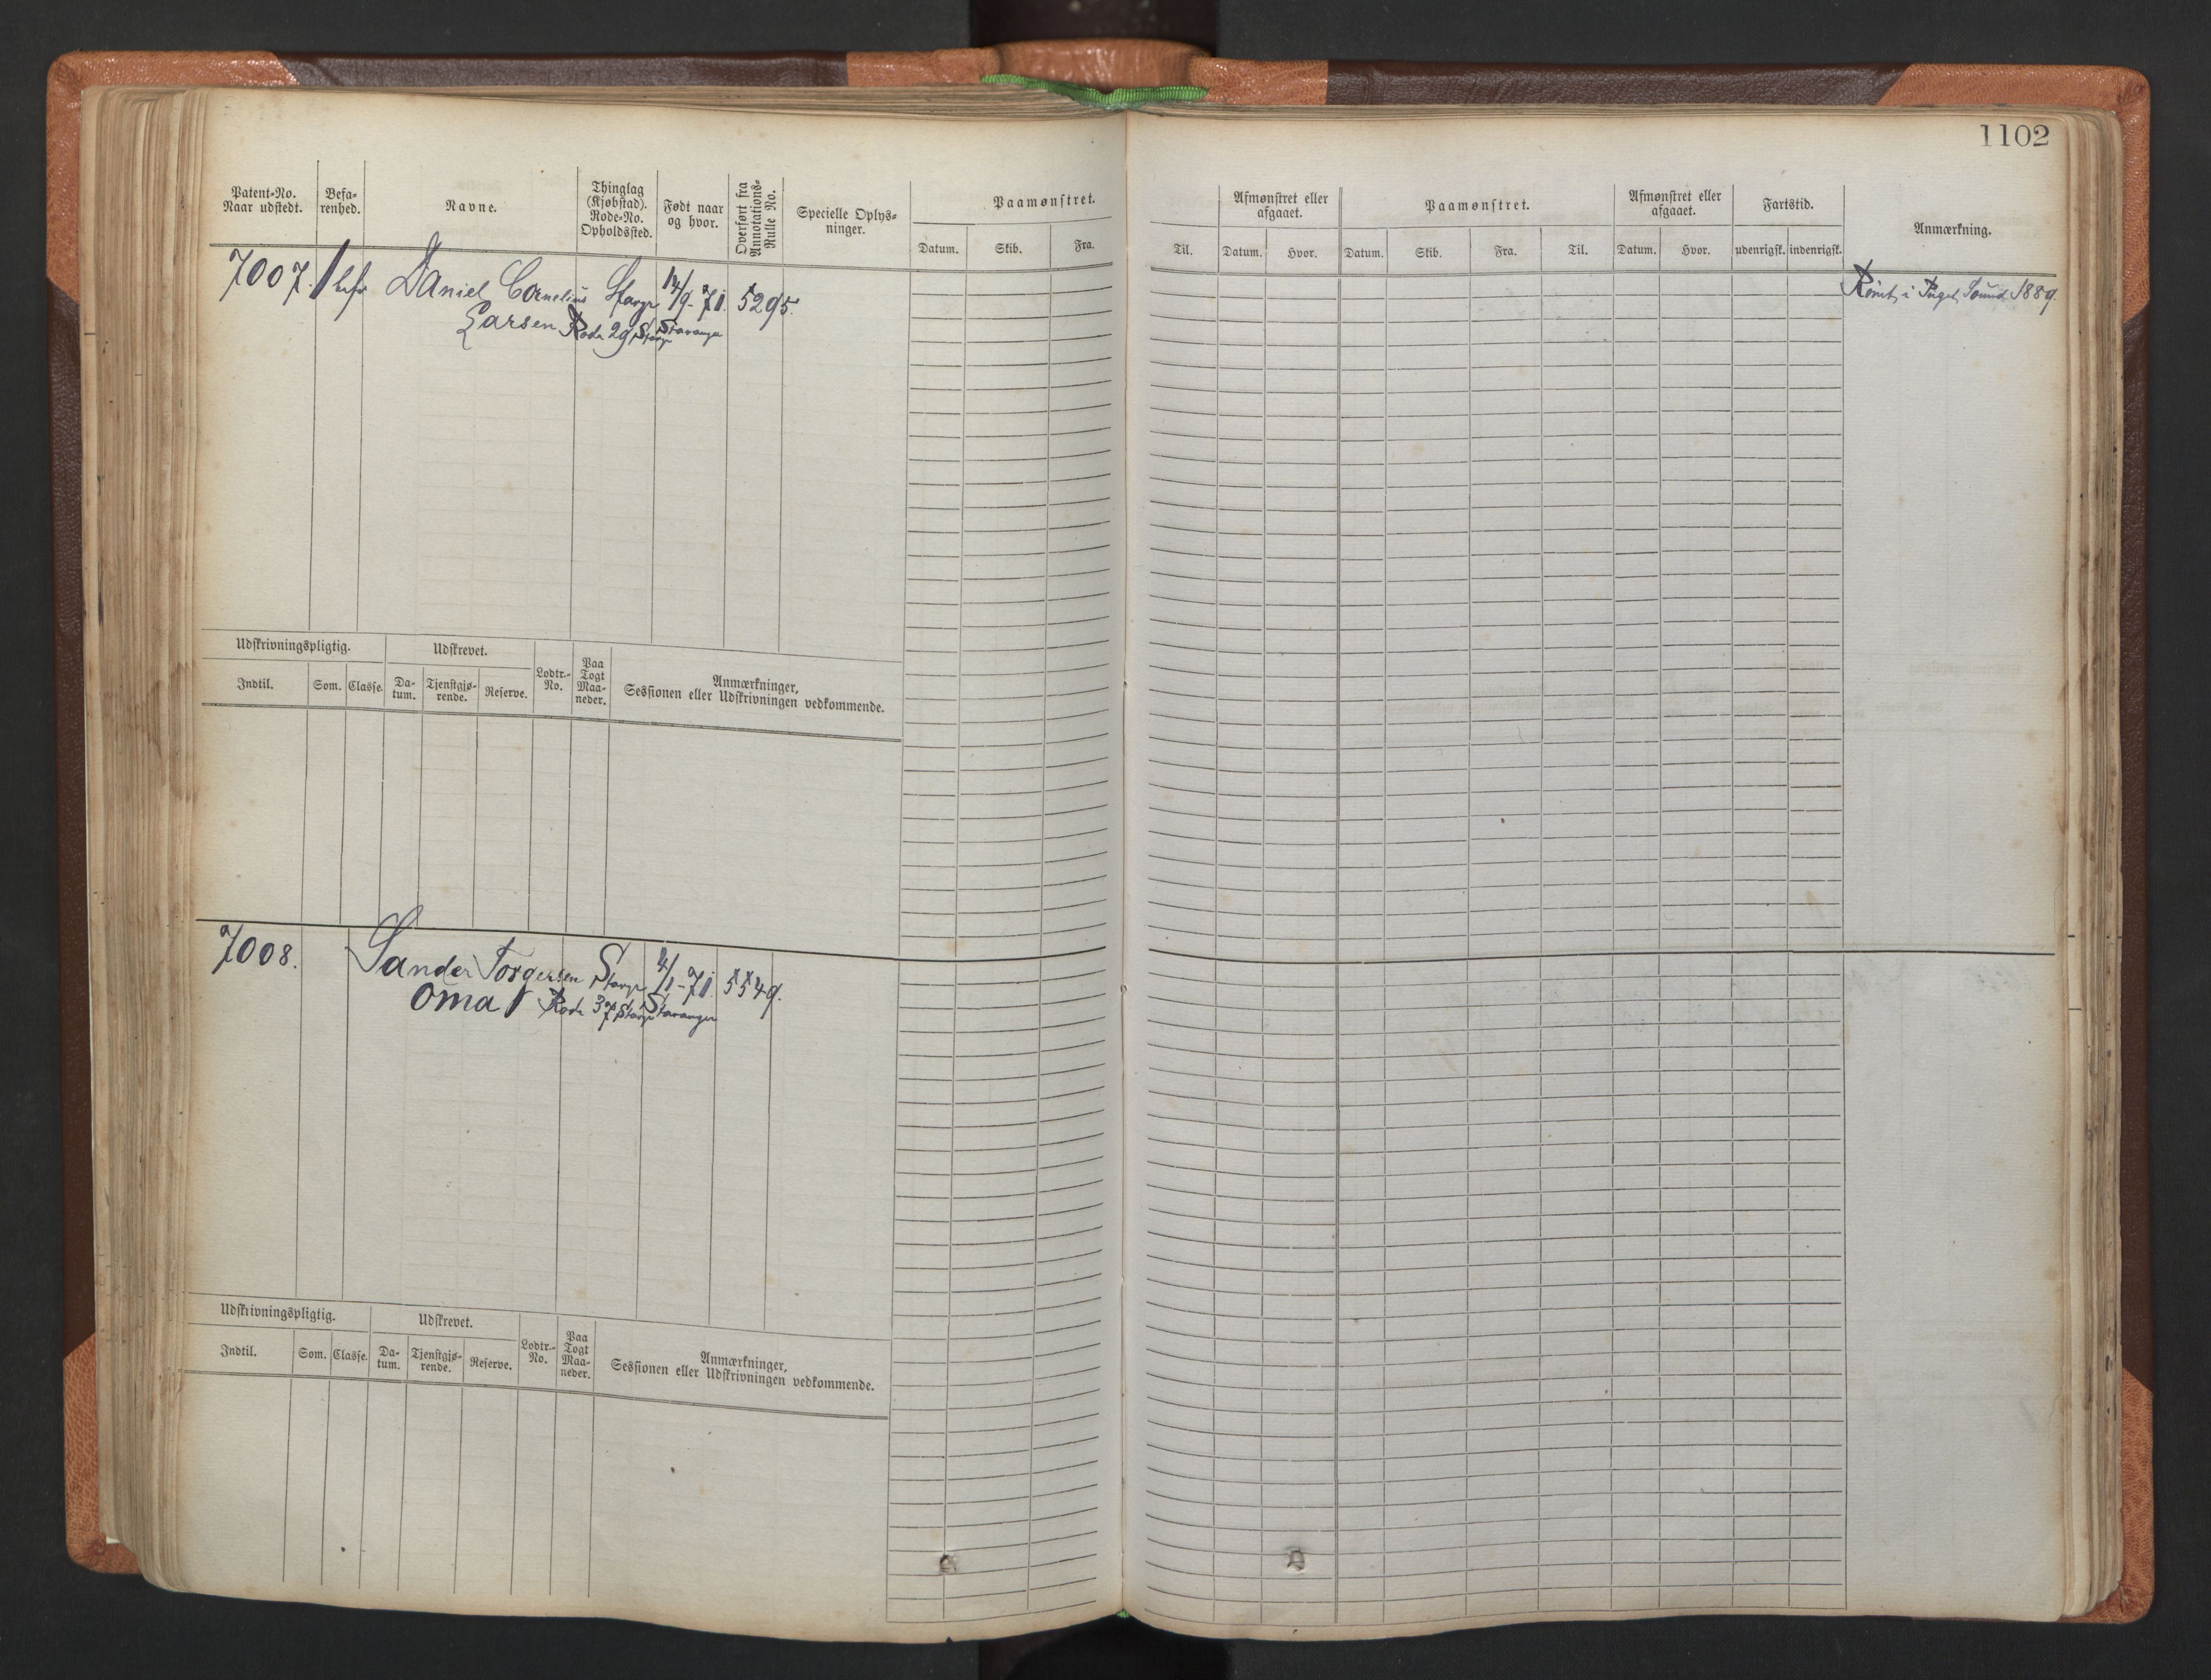 1102
Patent-No. Naar udstedt.
Befa-renhed.
Navne.
Thinglag (Kjøbstad). Rode-No. Opholdssted.
Født naar og hvor.
Overført fra Annotations-Rulle No.
Specielle Oplys-ninger.
Paamønstret.
Datum. Skib. Fra.
Til.
Afmønstret eller afgaaet.
Datum. Hvor.
Paamønstret.
Datum. Skib. Fra. Til.
Afmønstret eller afgaaet.
Datum. Hvor.
Fartstid.
udenrigsk. indenrigsk.
Anmærkning.
7007. 1 befr Daniel Cornelius Stavgr 14/9-71. 5295.
Larsen Rode 29 Stavgr Stavanger
Rømt i Puget Sound 1889.
Udskrivningspligtig.
Udskrevet.
Lodtr.-No.
Paa Togt Maa-neder.
Anmærkninger,
Sessionen eller Udskrivningen vedkommende.
Indtil. Som. Classe. Da-tum. Tjenstgjø-rende. Reserve.
7008. Sander Torgersen Stavgr 4/1-71. 5549.
Oma Rode 37 Stavgr Stavanger
Udskrivningspligtig.
Udskrevet.
Lodtr.-No.
Paa Togt Maa-neder.
Anmærkninger,
Sessionen eller Udskrivningen vedkommende.
Indtil. Som. Classe. Da-tum. Tjenstgjø-rende. Reserve.